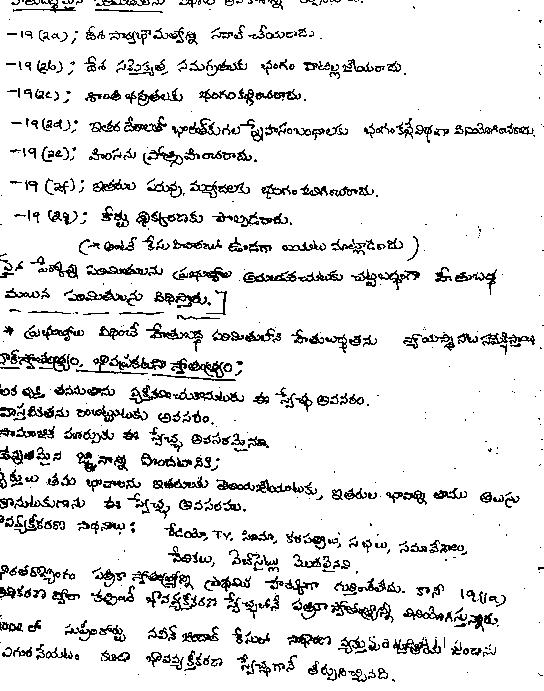 హేతుబద్ధమైన పరిమితులను
-19 (2a); దేశ సార్వభౌమత్వాన్ని సవాల్ చేయరాదు.
-19 (2b); దేశ సమైక్యత, సమగ్రతలకు భంగం వాటిల్లజేయరాదు.
-19(2c); శాంతి భద్రతలకు భంగం కల్గించరాదు.
-19(2d); ఇతర దేశాలతో భారత్‌కుగల స్నేహసంబంధాలకు భంగం కల్గేవిధంగా వినియోగించరాదు.
-19 (2e); హింసను ప్రోత్సహించరాదు.
-19 (2f); ఇతరుల పరువు, మర్యాదలకు భంగం కలిగించరాదు.
-19 (2g); కోర్టు ధిక్కరణకు పాల్పడరాదు.
(→ అంటే కేసు విచారణలో ఉండగా బయట మాట్లాడరాదు)
పైన పేర్కొన్న పరిమితులను ప్రభుత్వాలు అమలుపరచుటకు చట్టబద్ధంగా హేతుబద్ధ
మయిన పరిమితులను విధిస్తారు.]
* ప్రభుత్వాలు విధించే హేతుబద్ధ పరిమితులలోని హేతుబద్ధతను న్యాయస్థానాలు సమీక్షిస్తాయి
వాక్‌స్వాతంత్ర్యం, భావప్రకటనా స్వాతంత్ర్యం;
ఒక వ్యక్తి తనను తాను వ్యక్తీకరించుకొనుటకు ఈ స్వేచ్ఛ అవసరం.
వాస్తవికతను రాబట్టుటకు అవసరం.
సామాజిక మార్పుకు ఈ స్వేచ్ఛ అవసరమైనా
జ్ఞానాన్ని పొందటానికి;
వ్యక్తులు తమ భావాలను ఇతరులకు తెలియజేయుటకు, ఇతరుల భావాన్ని తాము తెలుసు
కొనుటకుగాను ఈ స్వేచ్ఛ అవసరము.
భావవ్యక్తీకరణ సాధనాలు: రేడియో, TV, సినిమా, కరపత్రాలు, సభలు, సమావేశాలు,
వేదికలు, వెబ్‌సైట్లు మొదలైనవి.
భారతరాజ్యాంగం పత్రికా స్వాతంత్ర్యాన్ని ప్రాథమిక హక్కుగా గుర్తించలేదు. కానీ 19(1)(a)
అధికరణ ద్వారా భావవ్యక్తీకరణ స్వేచ్ఛలోనే పత్రికాస్వాతంత్ర్యాన్ని వినియోగిస్తున్నారు.
లో సుప్రీంకోర్టు నవీన్ జిందాల్ కేసులో సాధారణ వ్యక్తులు జాతీయ జెండాను
ఎగురవేయటం కూడా భావవ్యక్తీకరణ స్వేచ్ఛగానే తీర్పునిచ్చినది.